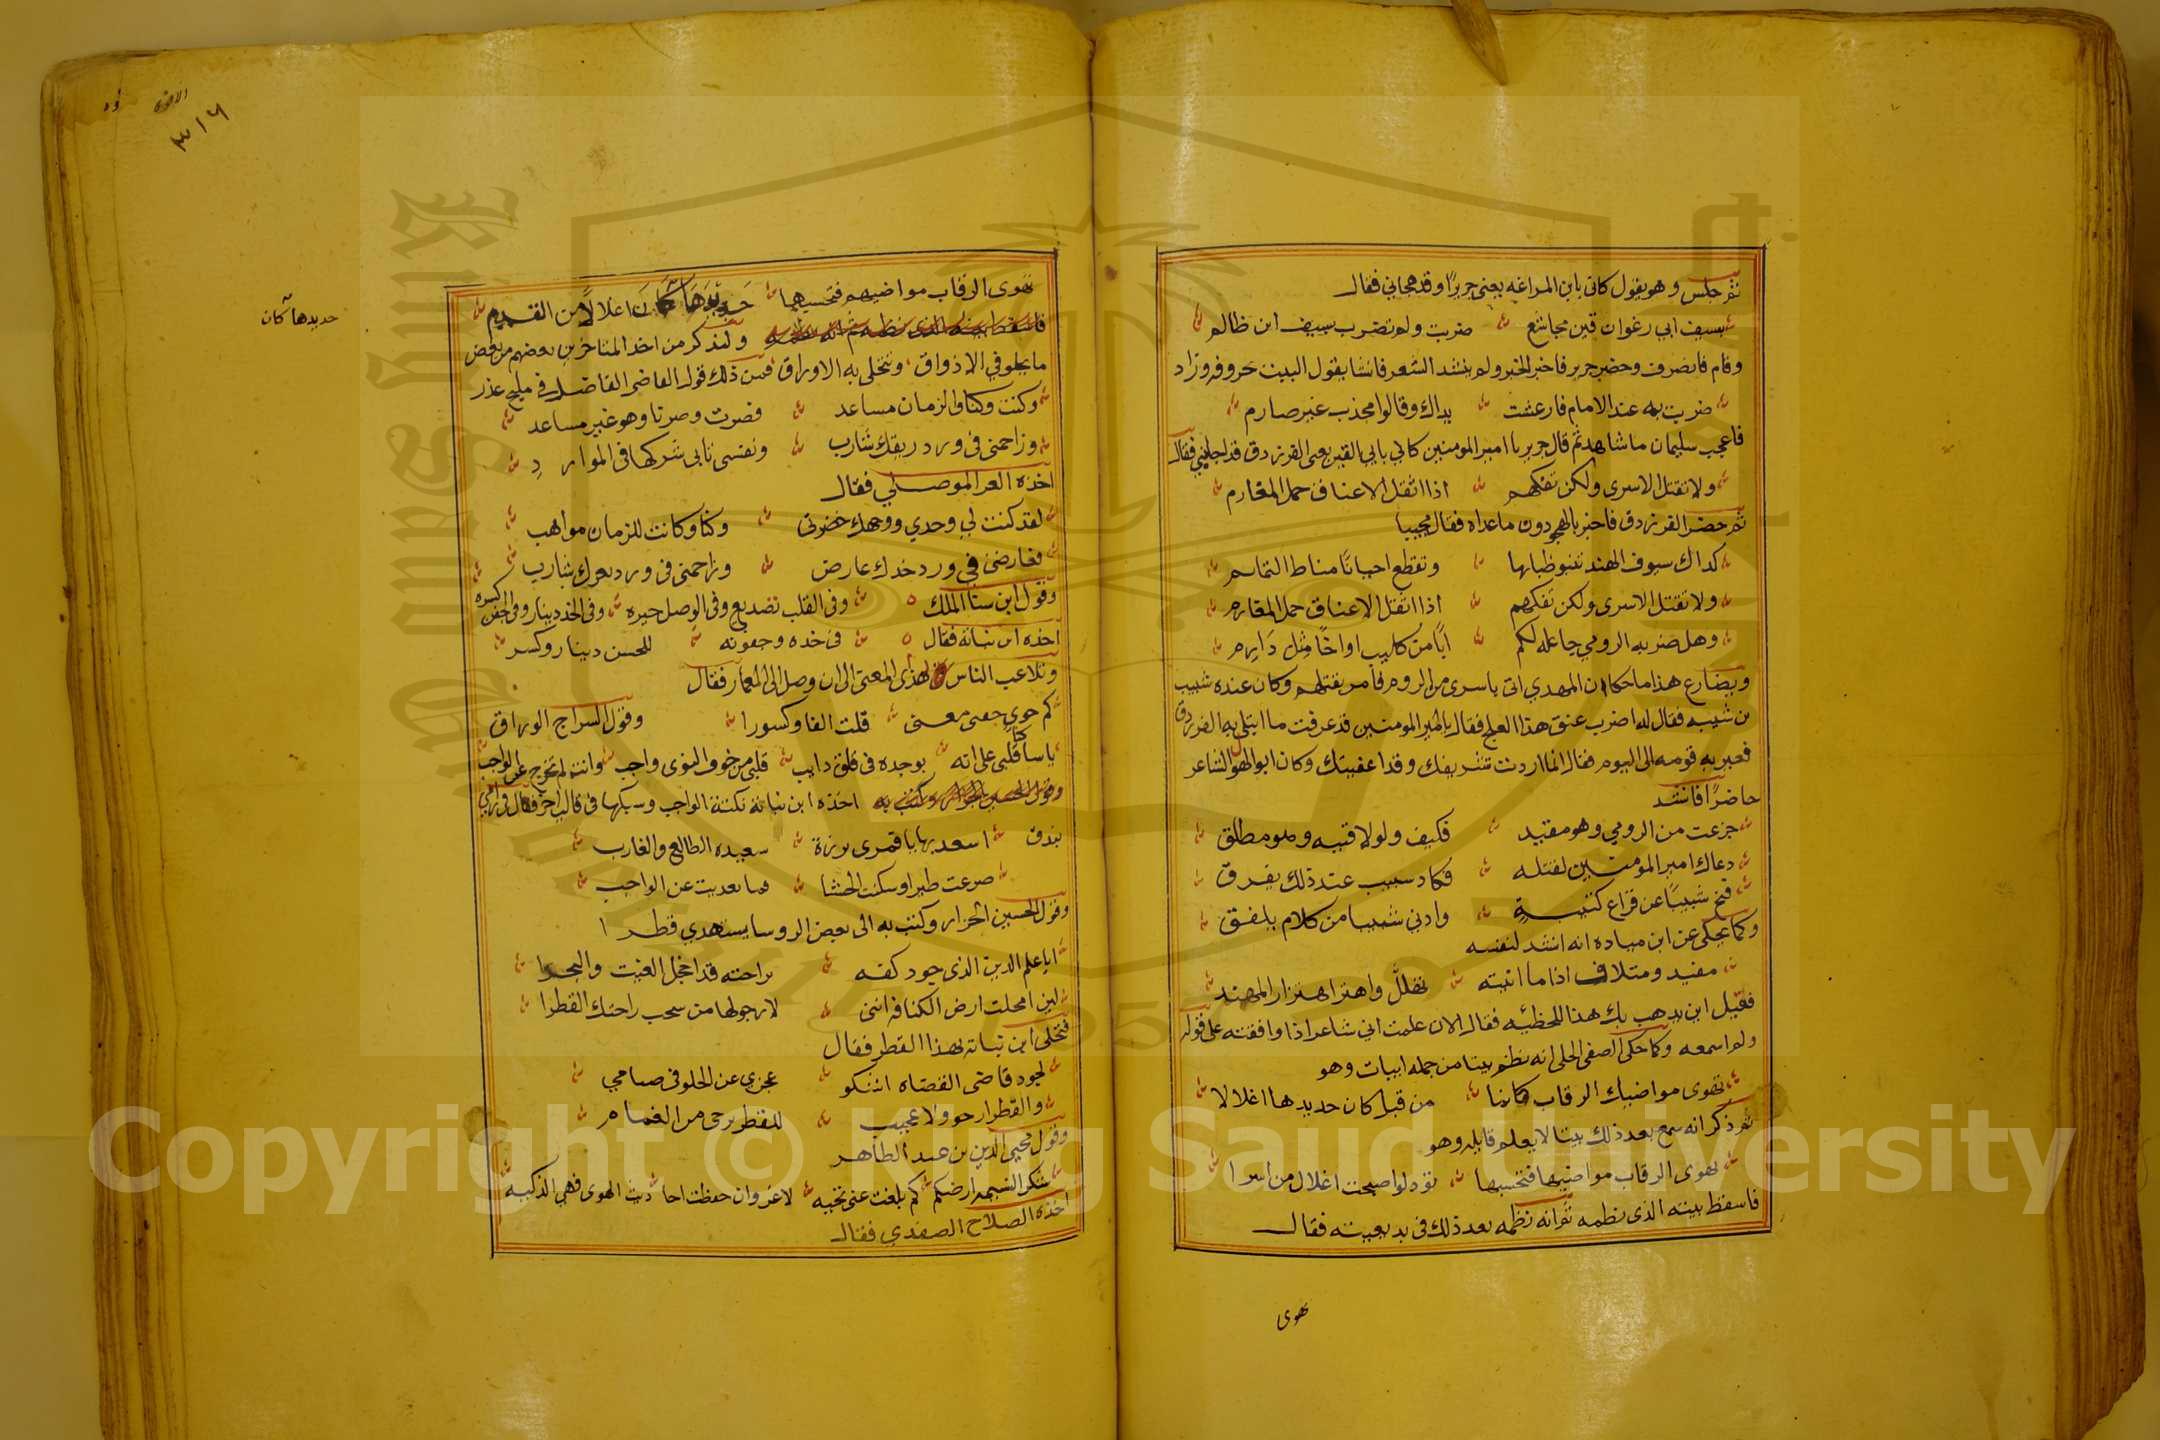 ثم جلس وهو يقول كاني بابن المراغه يعني جريرا وقد هجاني فقال
بسيف ابي رغوان قين مجاشع ضربت ولم تضرب بسيف ابن ظالم
وقام فانصرف وحضر جرير فاخبر الخبر ولم ينشد الشعر فانشا يقول البيت حروفه وزاد
ضربت به عند الامام فارعشت يداك وقالوا محذب غير صارم
فاعجب سليمان ما شاهد ثم قال جرير يا امير المومنين كاني بابن القين يعني الفرزدق قد اجابني فقال
ولا نقتل الاسرى ولكن نفكهم اذا اثقل الاعناق حمل المغارم
ثم حضر الفرزدق فاخبر بالهجو دون ما عداه فقال مجيبا
كذاك سيوف الهند تنبو ظباتها وتقطع احيانا مناط التمايم
ولا نقتل الاسرى ولكن نفكهم اذا اثقل الاعناق حمل المغارم
وهل ضربه الرومي جاعله لكم ابا من كليب او اخا مثل دارم
ويضارع هذا ما حكا ان المهدي اتى باسرى من الروم فامر بقتلهم وكان عنده شبيب
بن شيبه فقال له اضرب عنق هذا العلج فقال يا امير المومنين قد عرفت ما ابتلي به الفرزدق
فعير به قومه الى اليوم فقال انما اردت تشريفك وقد اعفيتك وكان ابو الهول الشاعر
حاضرا فانشد
جزعت من الرومي وهو مقيد فكيف ولو لاقيته وهو مطلق
دعاك امير المومنين لقتله فكاد شبيب عند ذلك يفرق
فنح شبيبا عن قراع كتيبة وادني شبيبا من كلام يلفق
وكما يحكى عن ابن مياده انه انشد لنفسه
مفيد ومتلاف اذا ما اتيته تهلل واهتز اهتزاز المهند
فقيل اين يذهب بك هذا للحطيئه فقال الان علمت اني شاعر اذا وافقته على قوله
ولم اسمعه وكما حكى الصفي الحلي انه نظم بيتا من جمله ابيات وهو
تهوى مواضيك الرقاب كانما من قبل كان حديدها اغلالا
ثم ذكر انه سمع بعد ذلك بيتا لا يعلم قايله وهو
تهوى الرقاب مواضيها فتحسبها تود لو اصبحت اغلال من اسرا
فاسقط بيته الذي نظمه ثم انه نظمه بعد ذلك في بديعيته فقال
تهوى
الاخوى
٣١٦
تهوى الرقاب مواضيهم فتحسبها حديدها كان اغلالا من القدم
حديدها كان
فاسقط بيته الذي نظمه ثم انه نظمه ولنذكر من اخذ المتاخرين بعضهم من بعض
ما يحلو في الاذواق وتتحلى به الاوراق فمن ذلك قول القاضي الفاضل في مليح عذر
وكنت وكنا والزمان مساعد فصرت وصرنا وهو غير مساعد
وزاحمني في ورد ريقك شارب ونفسي تابى شركها في الموارد
اخذه العز الموصلي فقال
لقد كنت لي وحدي ووجهك حضرتي وكنا وكانت للزمان مواهب
فعارضني في ورد خدك عارض وزاحمني في ورد شارب
وقول ابن سنا الملك وفي القلب تصديع وفي الوصل جيره وفي الخد دينار وفي الجفن كسره
اخذه ابن نباته فقال في خده وجفونه للحسن دينار وكسر
وتلاعب الناس بهذى المعنى الى ان وصل الى المعمار فقال
كم حوى جفني معنى قلت الفا وكسورا وقول السراج الوراق
يا ساكنا قلبي على انه بوجده في قلق دايب قلبي من خوف النوى واجب وانت لم تخرج عن الواجب
وقول الحسين الجزار وكتب به اخذه ابن نباتة نكتة الواجب وسبكها في قالب اخر فقال في رامي
بندق اسعد بها يا قمري برزة سعيده الطالع والغارب
صرعت طيرا وسكنت الحشا فما تعديت عن الواجب
وقول الحسين الجزار وكتب به الى بعض الروسا يستهدي قطرا
ايا علم الدين الذي جود كفه براحته قد اخجل الغيث والبحرا
لين امحلت ارض الكنافه انني لارجو لها من سحب راحتك القطرا
فتحلى ابن نباته بهذا القطر فقال
لجود قاضي القضاه اشكو عجزي عن الحلو في صيامي
والقطر ارجو ولا عجيب للقطر يرجى من الغمام
وقول محيي الدين بن عبد الظاهر
شكرا لنسيمة ارضكم كم بلغت عني تحيه لا غرو ان حفظت احاديث الهوى فهي الذكيه
اخذه الصلاح الصفدي فقال
Copyright © King Saud University